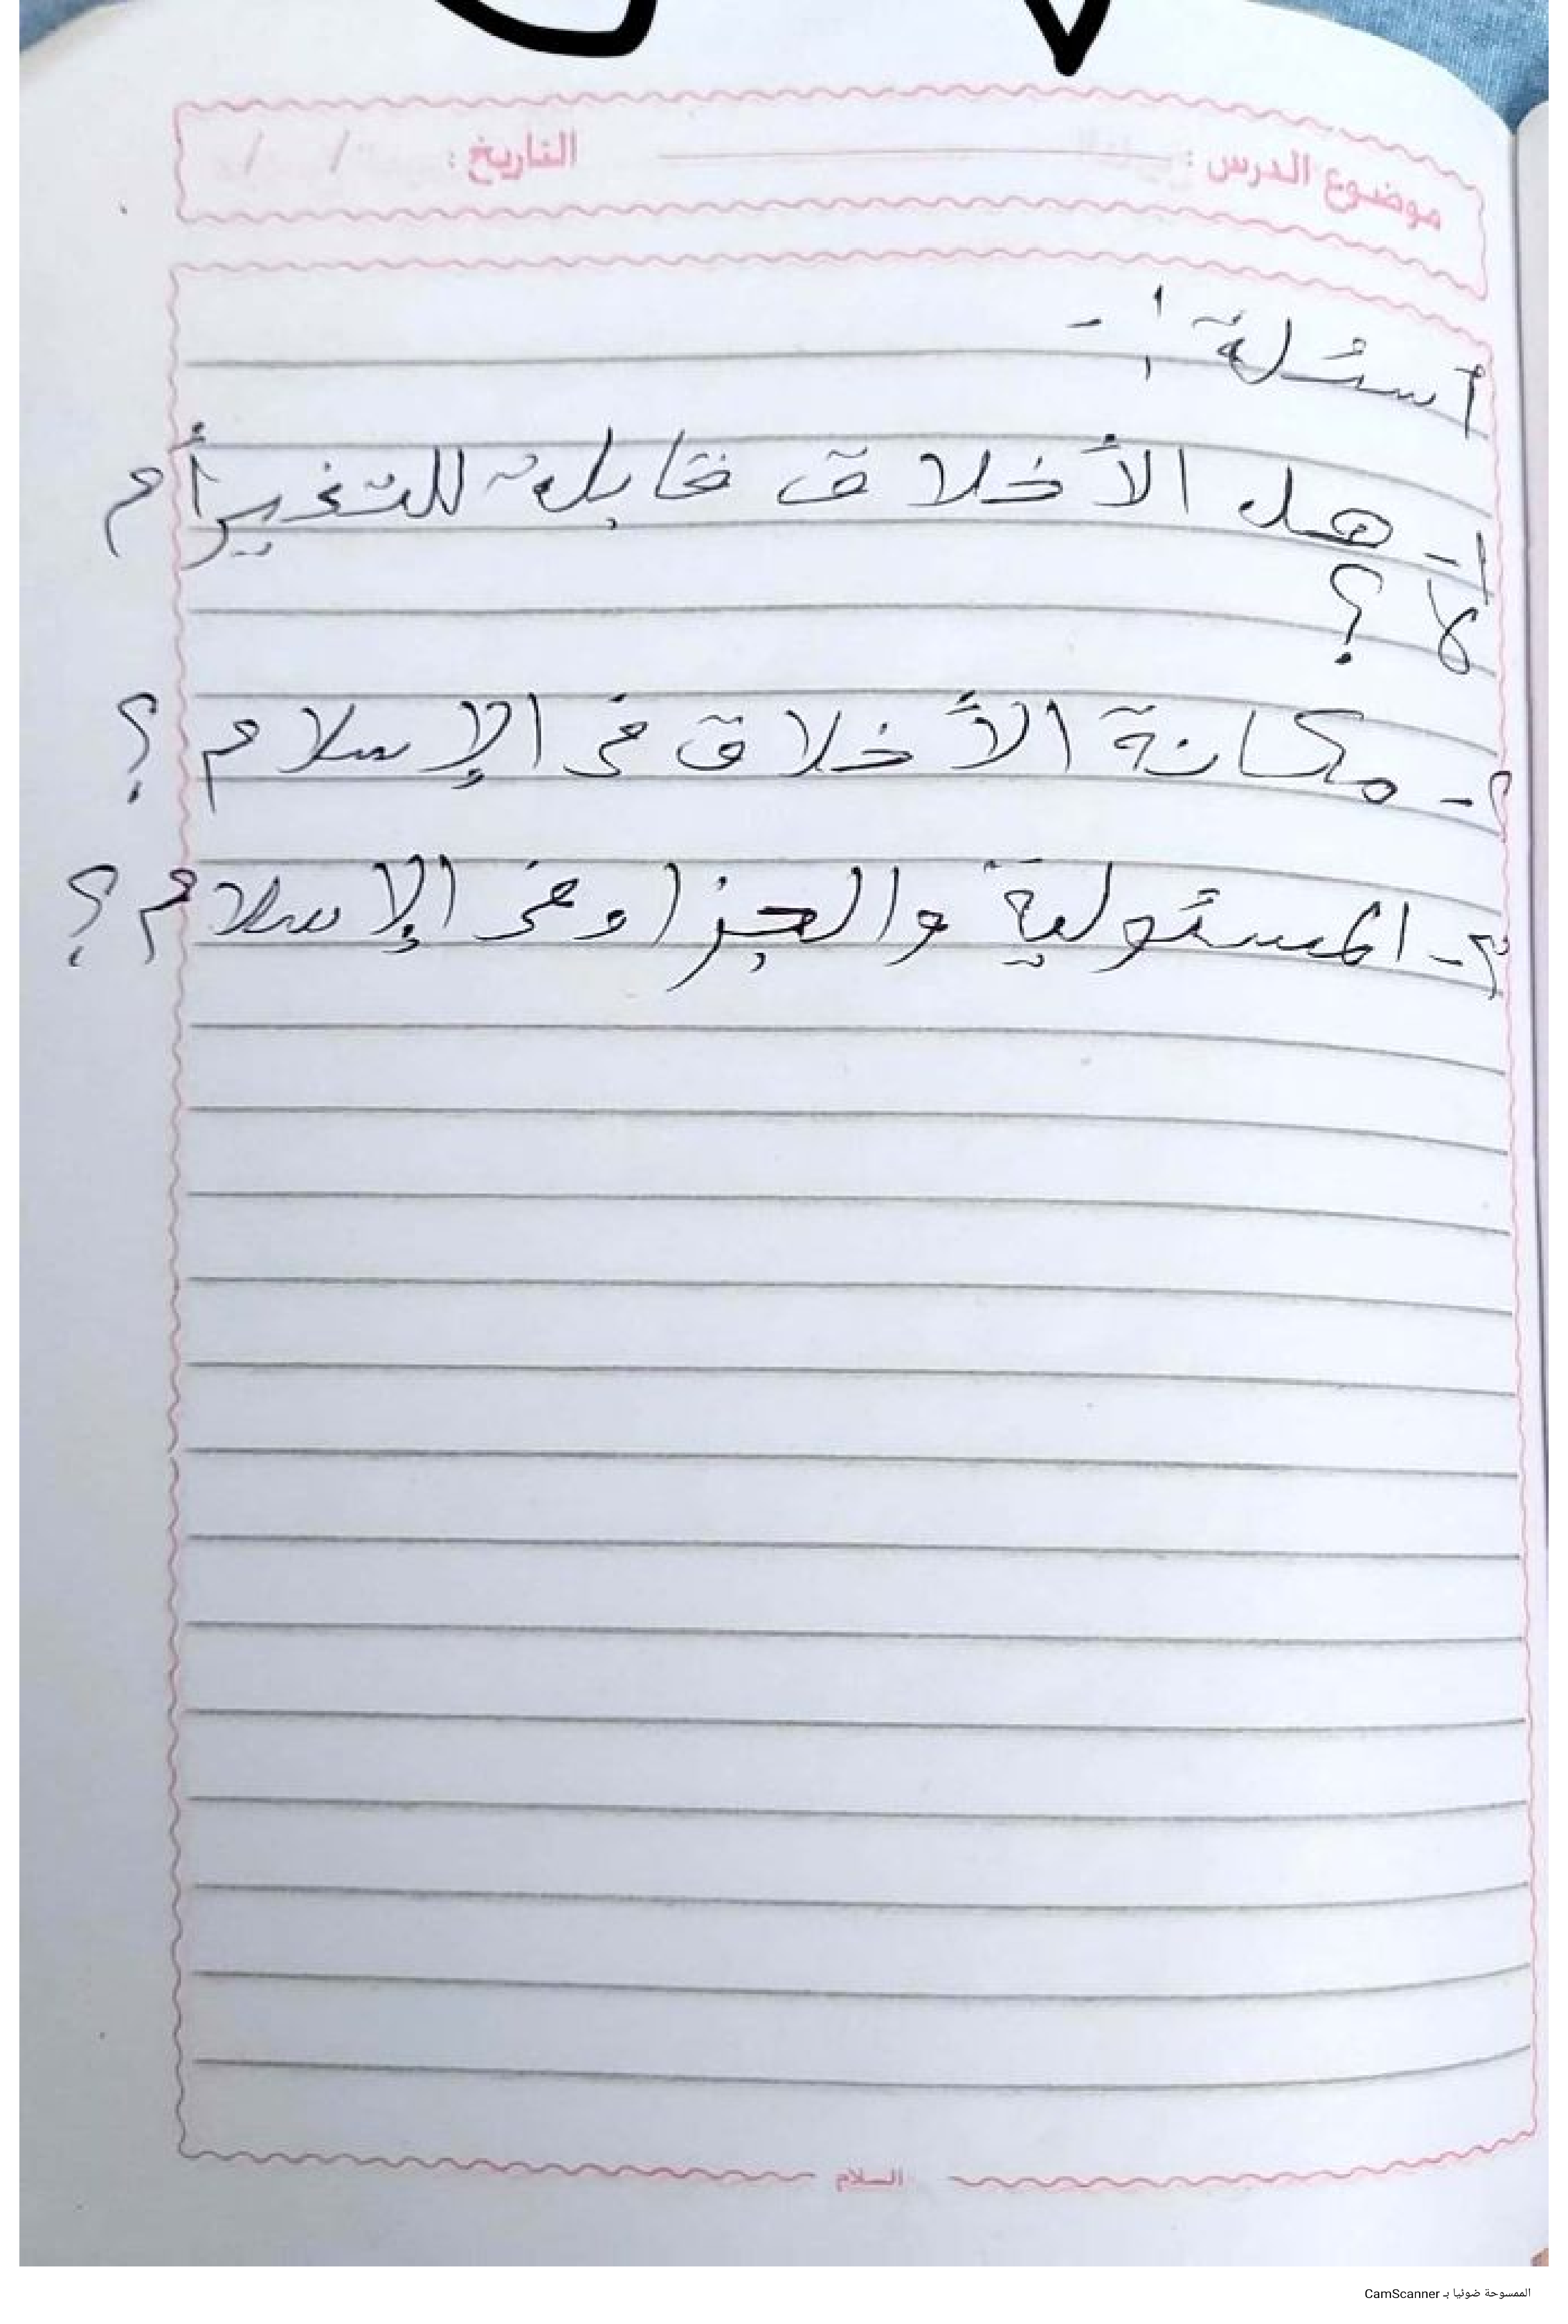 موضوع الدرس : التاريخ : / /
أسئلة :-
١- هل الأخلاق قابلة للتغير أم
لا ؟
٢- مكانة الأخلاق فى الإسلام ؟
٣- المسئولية والجزاء فى الإسلام ؟
السلام
الممسوحة ضوئيا بـ CamScanner